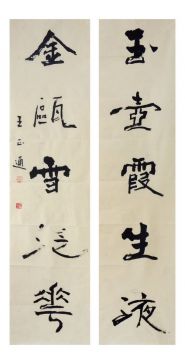 玉壺霞生液
金甌雪泛花
王正通